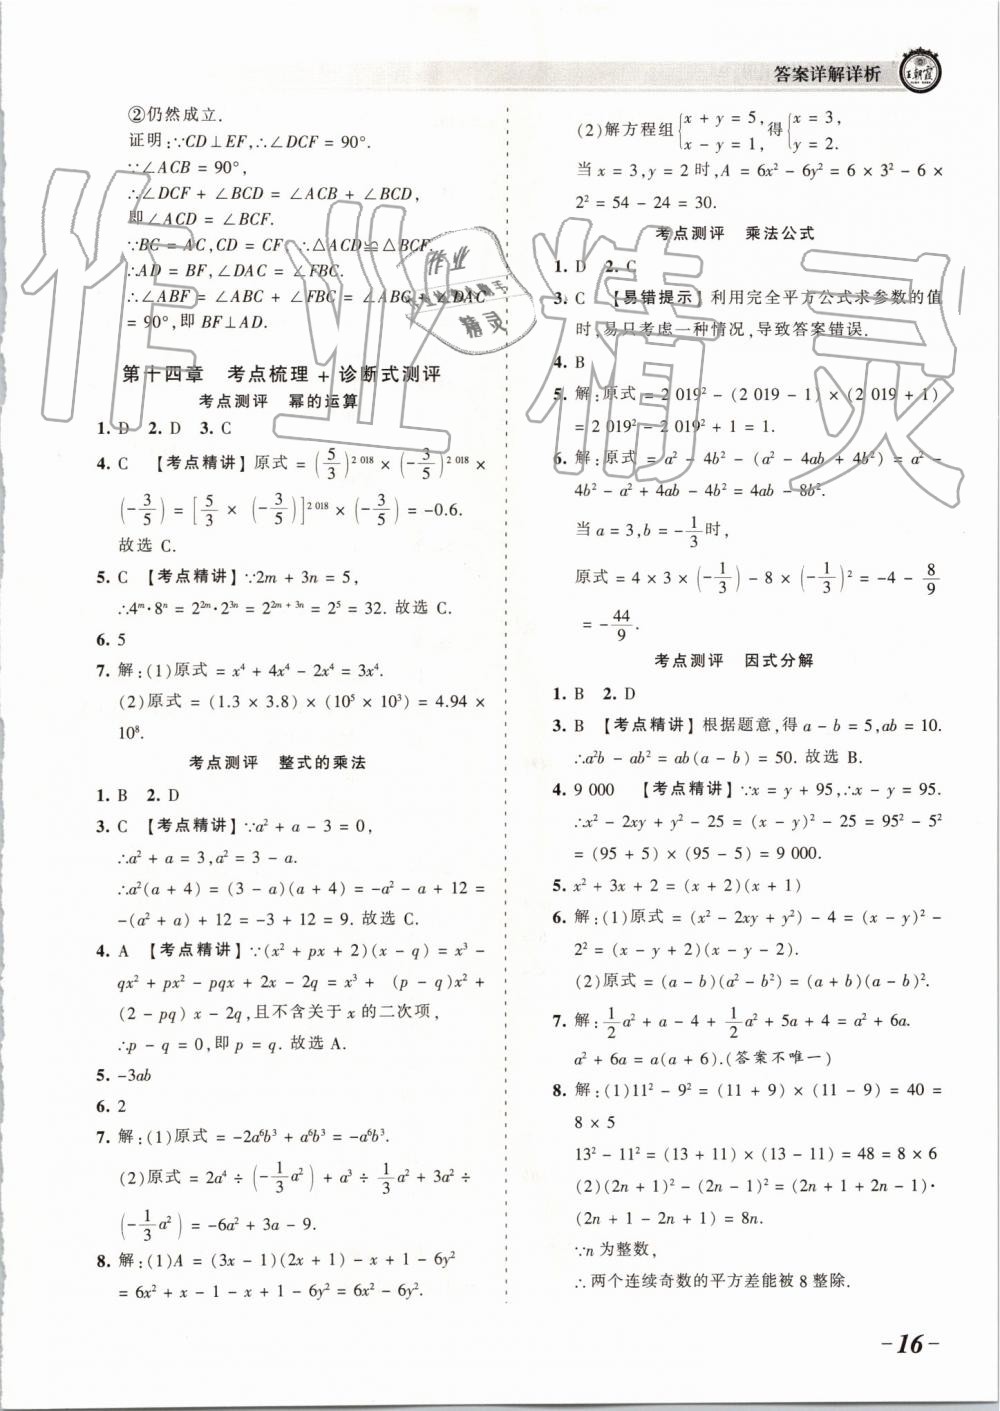 答案详解详析
王朝霞
②仍然成立.
证明:∵CD⊥EF,∴∠DCF = 90°.
∵∠ACB = 90°,
∴∠DCF + ∠BCD = ∠ACB + ∠BCD,
即∠ACD = ∠BCF.
∵BC = AC,CD = CF,∴△ACD≌△BCF.
∴AD = BF,∠DAC = ∠FBC.
∴∠ABF = ∠ABC + ∠FBC = ∠ABC + ∠DAC
= 90°,即 BF⊥AD.
第十四章 考点梳理 + 诊断式测评
考点测评 幂的运算
1. D 2. D 3. C
4. C 【考点精讲】原式 = (5/3)^2 018 × (-3/5)^2 018 ×
(-3/5) = [5/3 × (-3/5)]^2 018 × (-3/5) = -0.6.
故选 C.
5. C 【考点精讲】∵2m + 3n = 5,
∴4^m·8^n = 2^2m·2^3n = 2^(2m + 3n) = 2⁵ = 32. 故选 C.
6. 5
7. 解:(1)原式 = x⁴ + 4x⁴ - 2x⁴ = 3x⁴.
(2)原式 = (1.3 × 3.8) × (10⁵ × 10³) = 4.94 ×
10⁸.
考点测评 整式的乘法
1. B 2. D
3. C 【考点精讲】∵a² + a - 3 = 0,
∴a² + a = 3,a² = 3 - a.
∴a²(a + 4) = (3 - a)(a + 4) = -a² - a + 12 =
-(a² + a) + 12 = -3 + 12 = 9. 故选 C.
4. A 【考点精讲】∵(x² + px + 2)(x - q) = x³ -
qx² + px² - pqx + 2x - 2q = x³ + (p - q)x² +
(2 - pq) x - 2q,且不含关于 x 的二次项,
∴p - q = 0,即 p = q. 故选 A.
5. -3ab
6. 2
7. 解:(1)原式 = -2a⁶b³ + a⁶b³ = -a⁶b³.
(2)原式 = 2a⁴ ÷ (-1/3 a²) + a³ ÷ 1/3 a² + 3a² ÷
(-1/3 a²) = -6a² + 3a - 9.
8. 解:(1)A = (3x - 1)(2x + 1) - x + 1 - 6y²
= 6x² + x - 1 - x + 1 - 6y² = 6x² - 6y².
(2)解方程组{x + y = 5, x - y = 1, 得{x = 3, y = 2.
当 x = 3,y = 2 时,A = 6x² - 6y² = 6 × 3² - 6 ×
2² = 54 - 24 = 30.
考点测评 乘法公式
1. D 2. C
3. C 【易错提示】利用完全平方公式求参数的值
时,易只考虑一种情况,导致答案错误.
4. B
5. 解:原式 = 2 019² - (2 019 - 1) × (2 019 + 1)
= 2 019² - 2 019² + 1 = 1.
6. 解:原式 = a² - 4b² - (a² - 4ab + 4b²) = a² -
4b² - a² + 4ab - 4b² = 4ab - 8b².
当 a = 3,b = -1/3时,
原式 = 4 × 3 × (-1/3) - 8 × (-1/3)² = -4 - 8/9
= -44/9.
考点测评 因式分解
1. B 2. D
3. B 【考点精讲】根据题意,得 a - b = 5,ab = 10.
∴a²b - ab² = ab(a - b) = 50. 故选 B.
4. 9 000 【考点精讲】∵x = y + 95,∴x - y = 95.
∴x² - 2xy + y² - 25 = (x - y)² - 25 = 95² - 5²
= (95 + 5) × (95 - 5) = 9 000.
5. x² + 3x + 2 = (x + 2)(x + 1)
6. 解:(1)原式 = (x² - 2xy + y²) - 4 = (x - y)² -
2² = (x - y + 2)(x - y - 2).
(2)原式 = (a - b)(a² - b²) = (a + b)(a - b)².
7. 解:1/2 a² + a - 4 + 1/2 a² + 5a + 4 = a² + 6a.
a² + 6a = a(a + 6).(答案不唯一)
8. 解:(1)11² - 9² = (11 + 9) × (11 - 9) = 40 =
8 × 5
13² - 11² = (13 + 11) × (13 - 11) = 48 = 8 × 6
(2)(2n + 1)² - (2n - 1)² = (2n + 1 + 2n - 1)·
(2n + 1 - 2n + 1) = 8n.
∵n 为整数,
∴两个连续奇数的平方差能被 8 整除.
-16-
作业精灵
作业
精灵